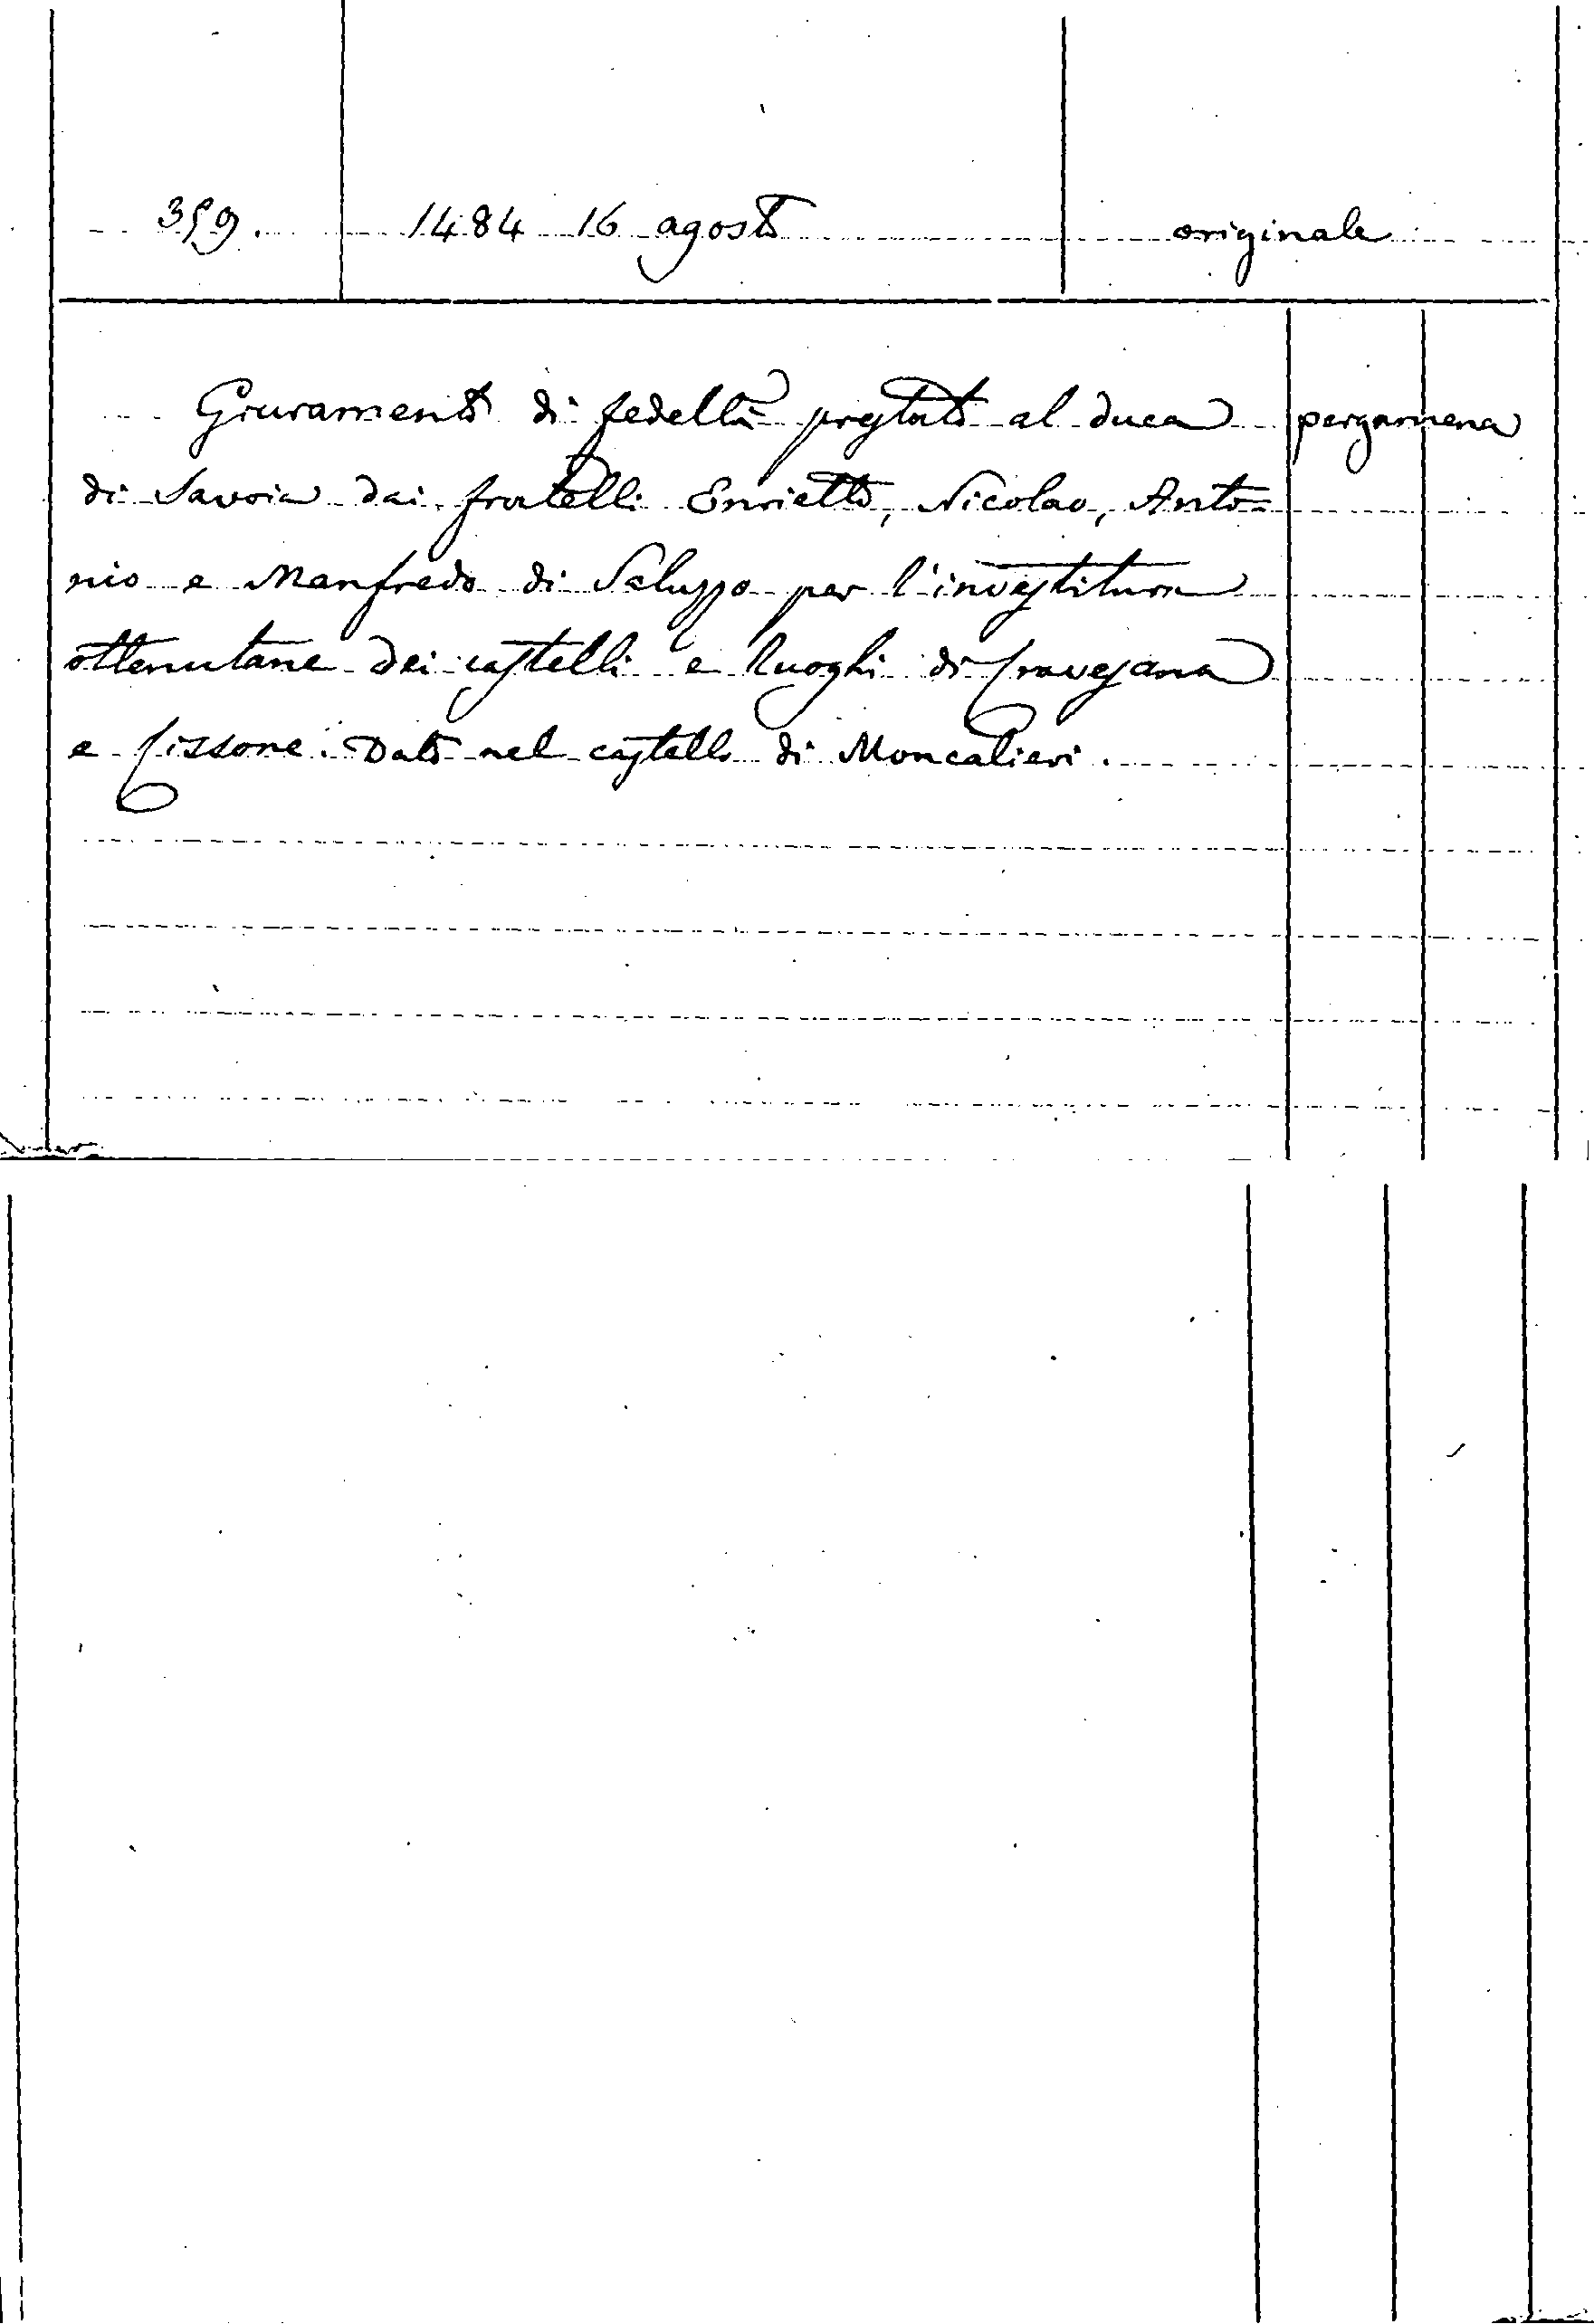 359. 1484 16 agosto originale
Giuramento di fedeltà prestato al duca pergamena
di Savoia dai fratelli Enrietto, Nicolao, Anto=
nio e Manfredo di Saluzzo per l'investitura
ottenutane dei castelli e luoghi di Cravesana
e Cissone. Dato nel castello di Moncalieri.